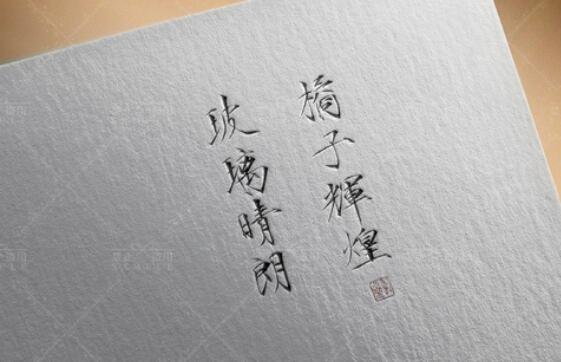 玻璃晴朗
橘子輝煌